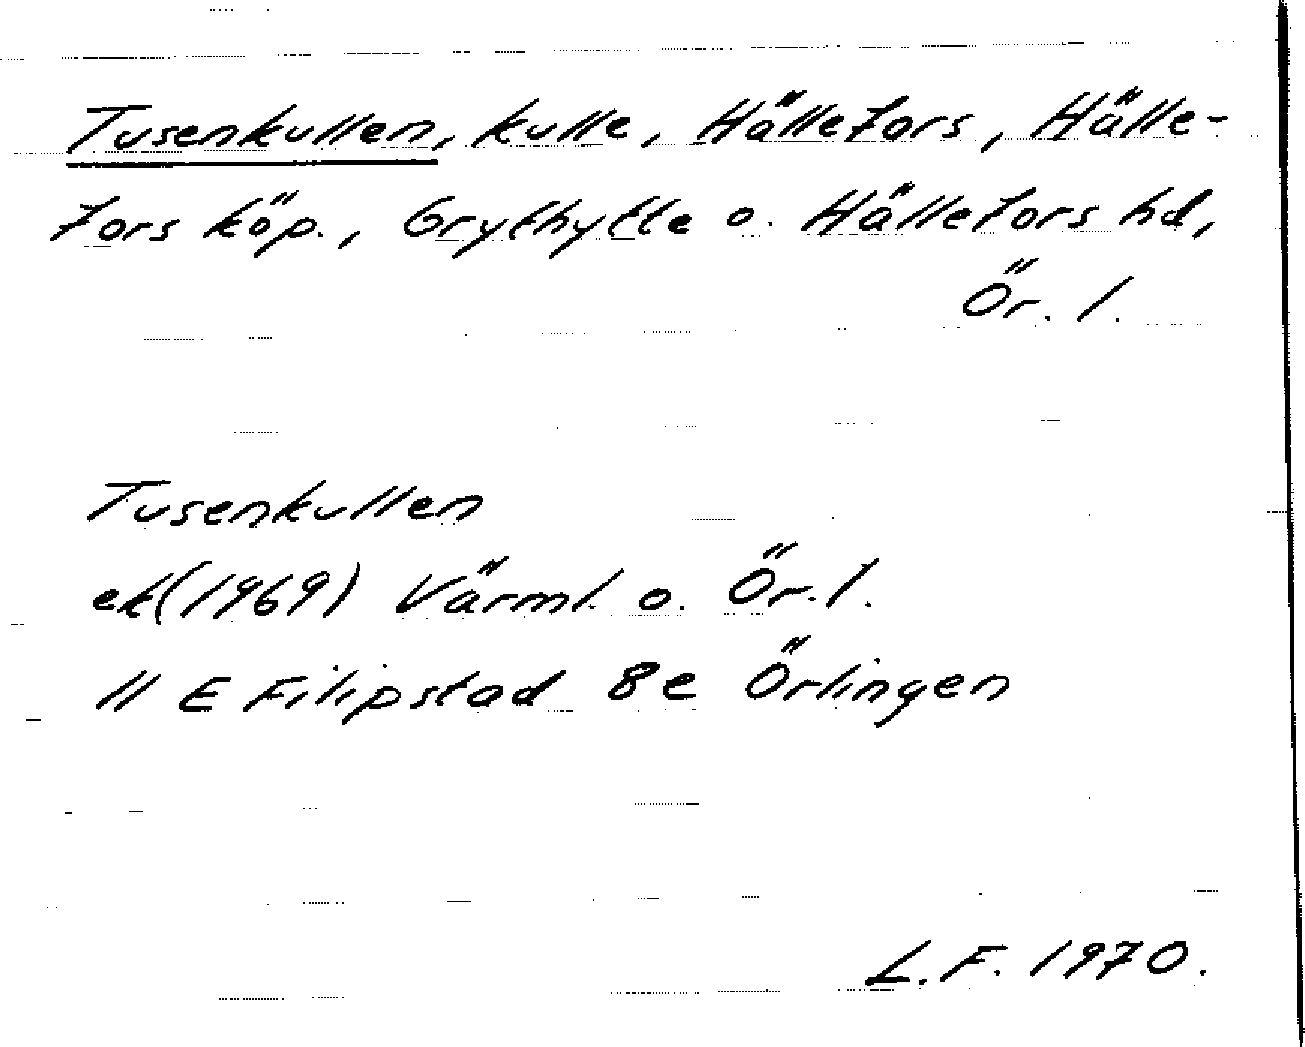 Tusenkullen, kulle, Hällefors, Hälle-
fors köp., Grythytte o. Hällefors hd,
Ör. l.
Tusenkullen
ek(1969) Värml. o. Ör. l.
11 E Filipstad 8e Örlingen
L.F. 1970.